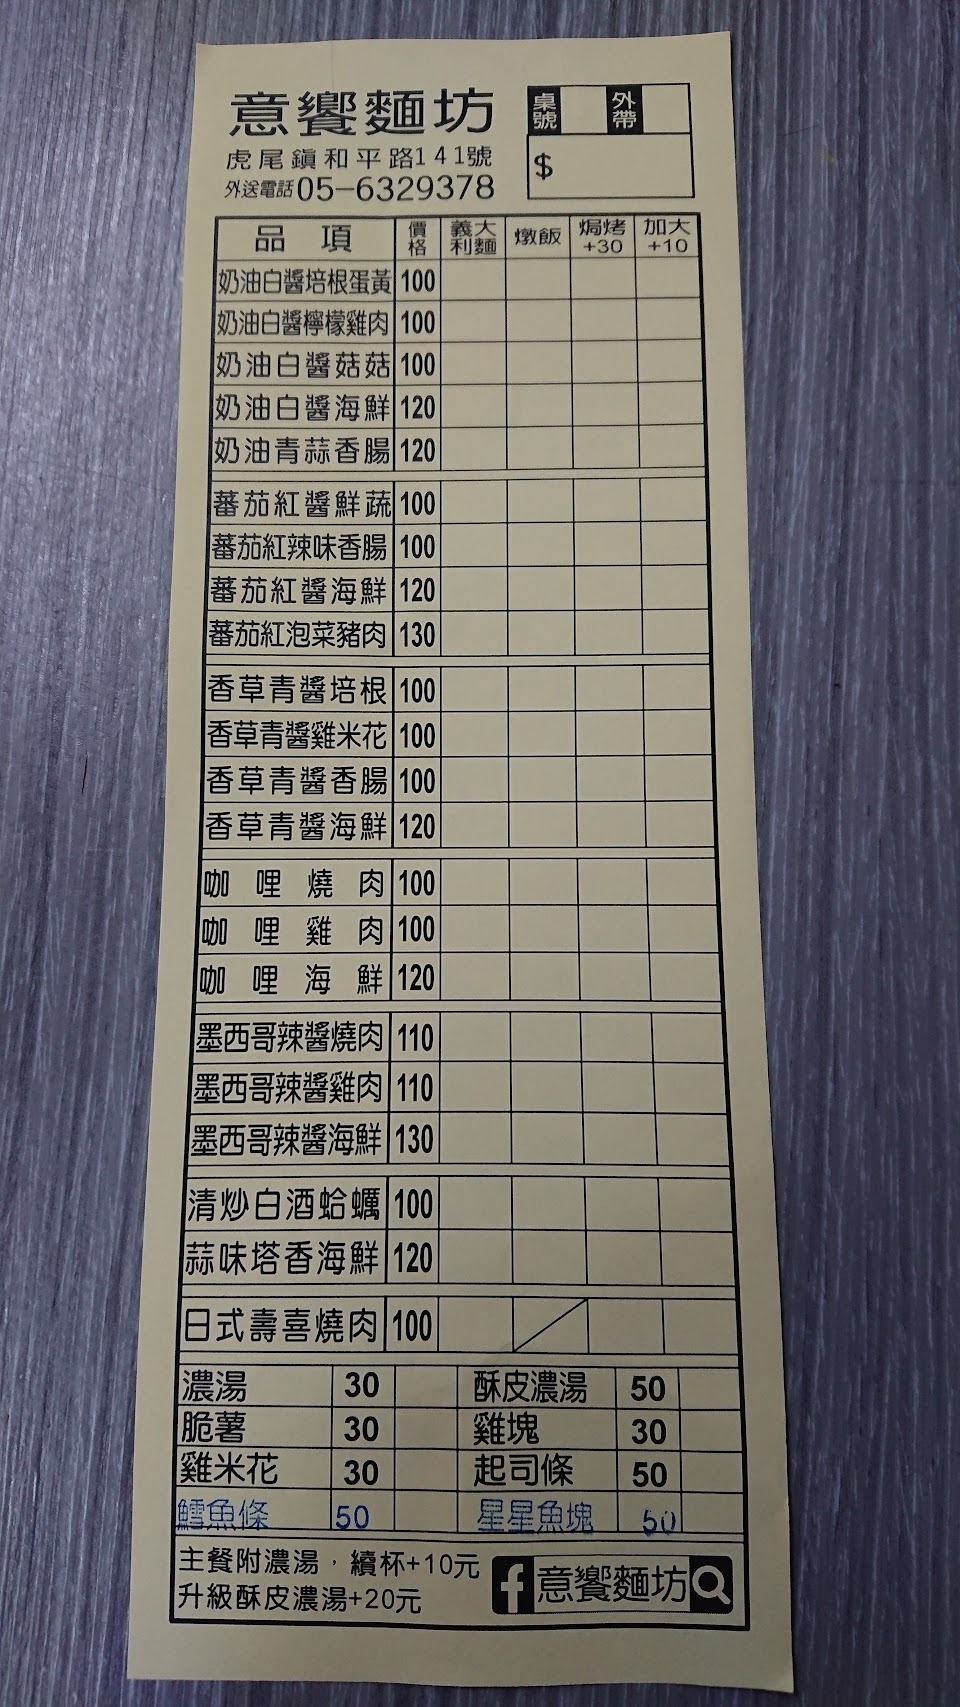 意饗麵坊
桌號 外帶
虎尾鎮和平路141號
$
外送電話05-6329378
品項 價格 義大利麵 燉飯 焗烤+30 加大+10
奶油白醬培根蛋黃 100
奶油白醬檸檬雞肉 100
奶油白醬菇菇 100
奶油白醬海鮮 120
奶油青蒜香腸 120
蕃茄紅醬鮮蔬 100
蕃茄紅辣味香腸 100
蕃茄紅醬海鮮 120
蕃茄紅泡菜豬肉 130
香草青醬培根 100
香草青醬雞米花 100
香草青醬香腸 100
香草青醬海鮮 120
咖哩燒肉 100
咖哩雞肉 100
咖哩海鮮 120
墨西哥辣醬燒肉 110
墨西哥辣醬雞肉 110
墨西哥辣醬海鮮 130
清炒白酒蛤蠣 100
蒜味塔香海鮮 120
日式壽喜燒肉 100
濃湯 30 酥皮濃湯 50
脆薯 30 雞塊 30
雞米花 30 起司條 50
鱈魚條 50 星星魚塊 50
主餐附濃湯,續杯+10元
升級酥皮濃湯+20元
f 意饗麵坊